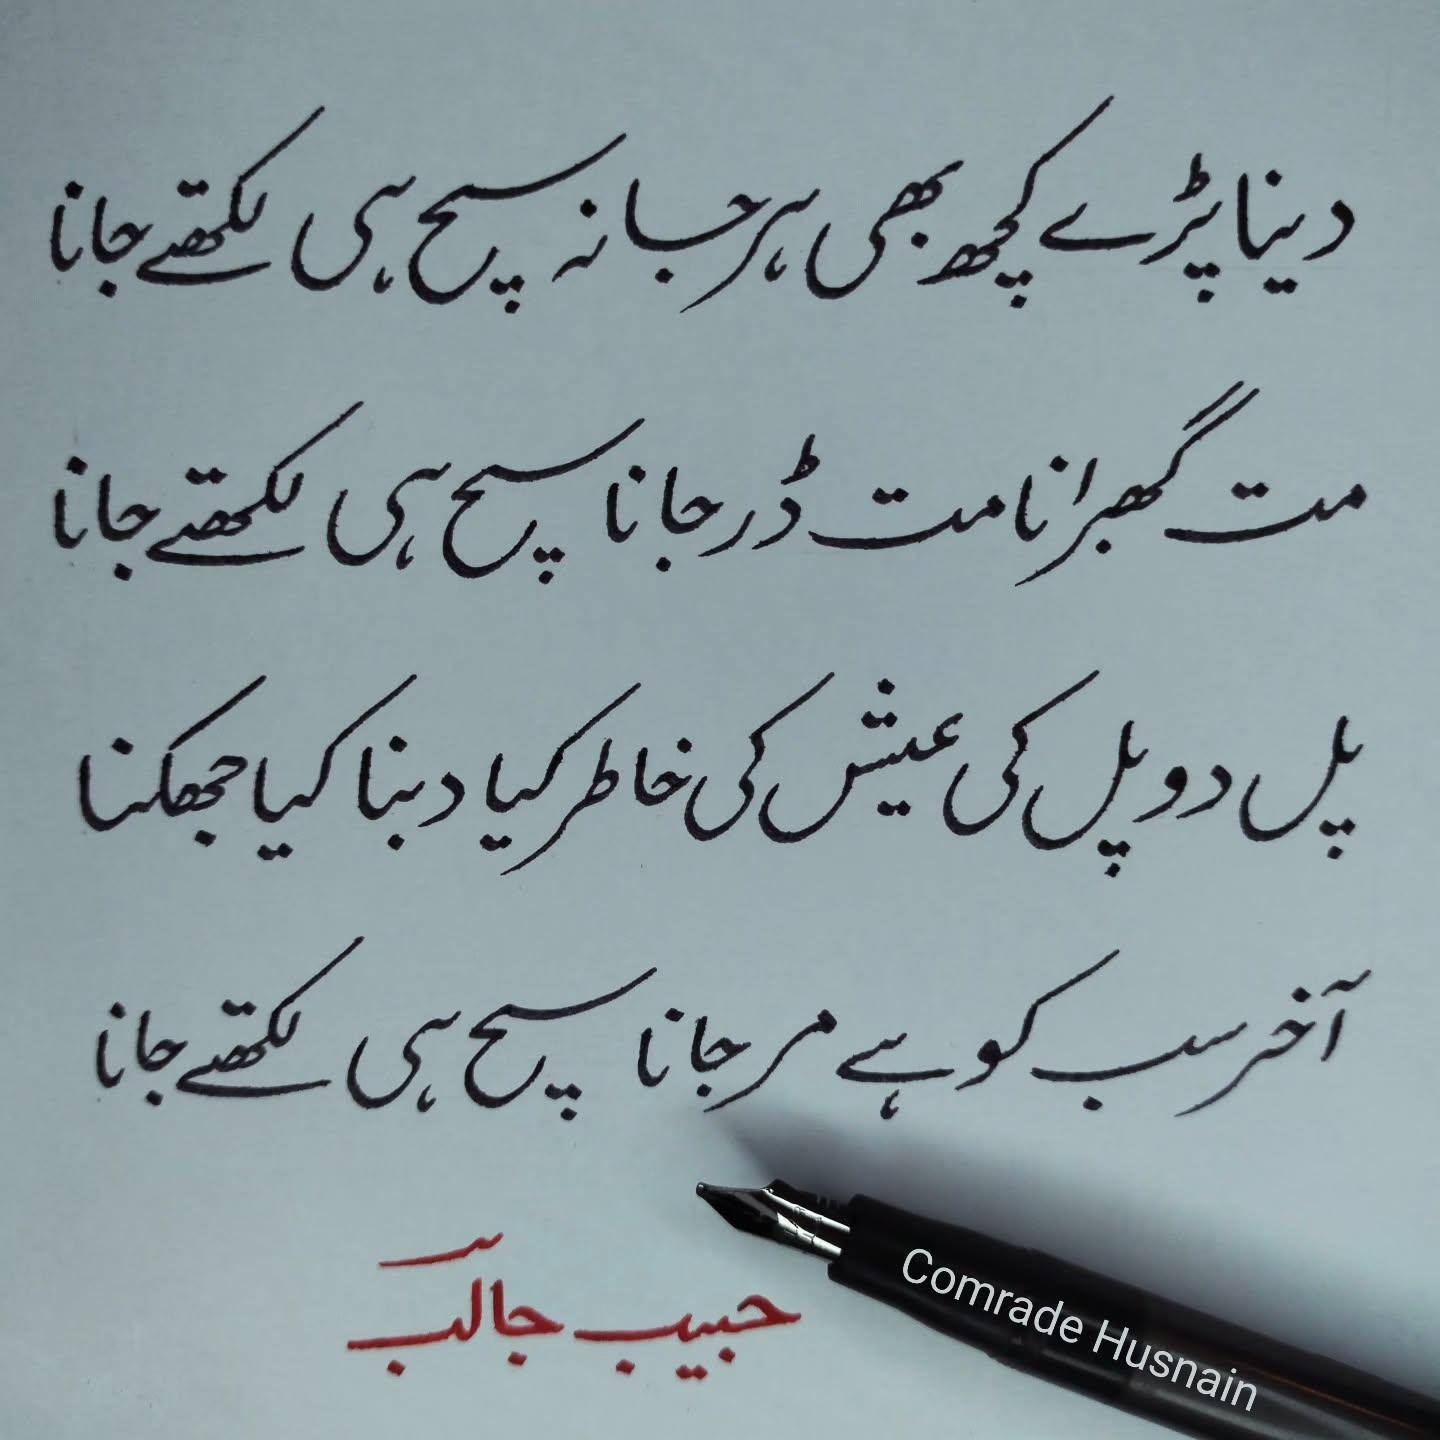 دینا پڑے کچھ بھی ہرجانہ سچ ہی لکھتے جانا
مت گھبرانا مت ڈر جانا سچ ہی لکھتے جانا
پل دو پل کی عیش کی خاطر کیا دبنا کیا جھکنا
آخر سب کو ہے مر جانا سچ ہی لکھتے جانا
حبیب جالب
Comrade Husnain